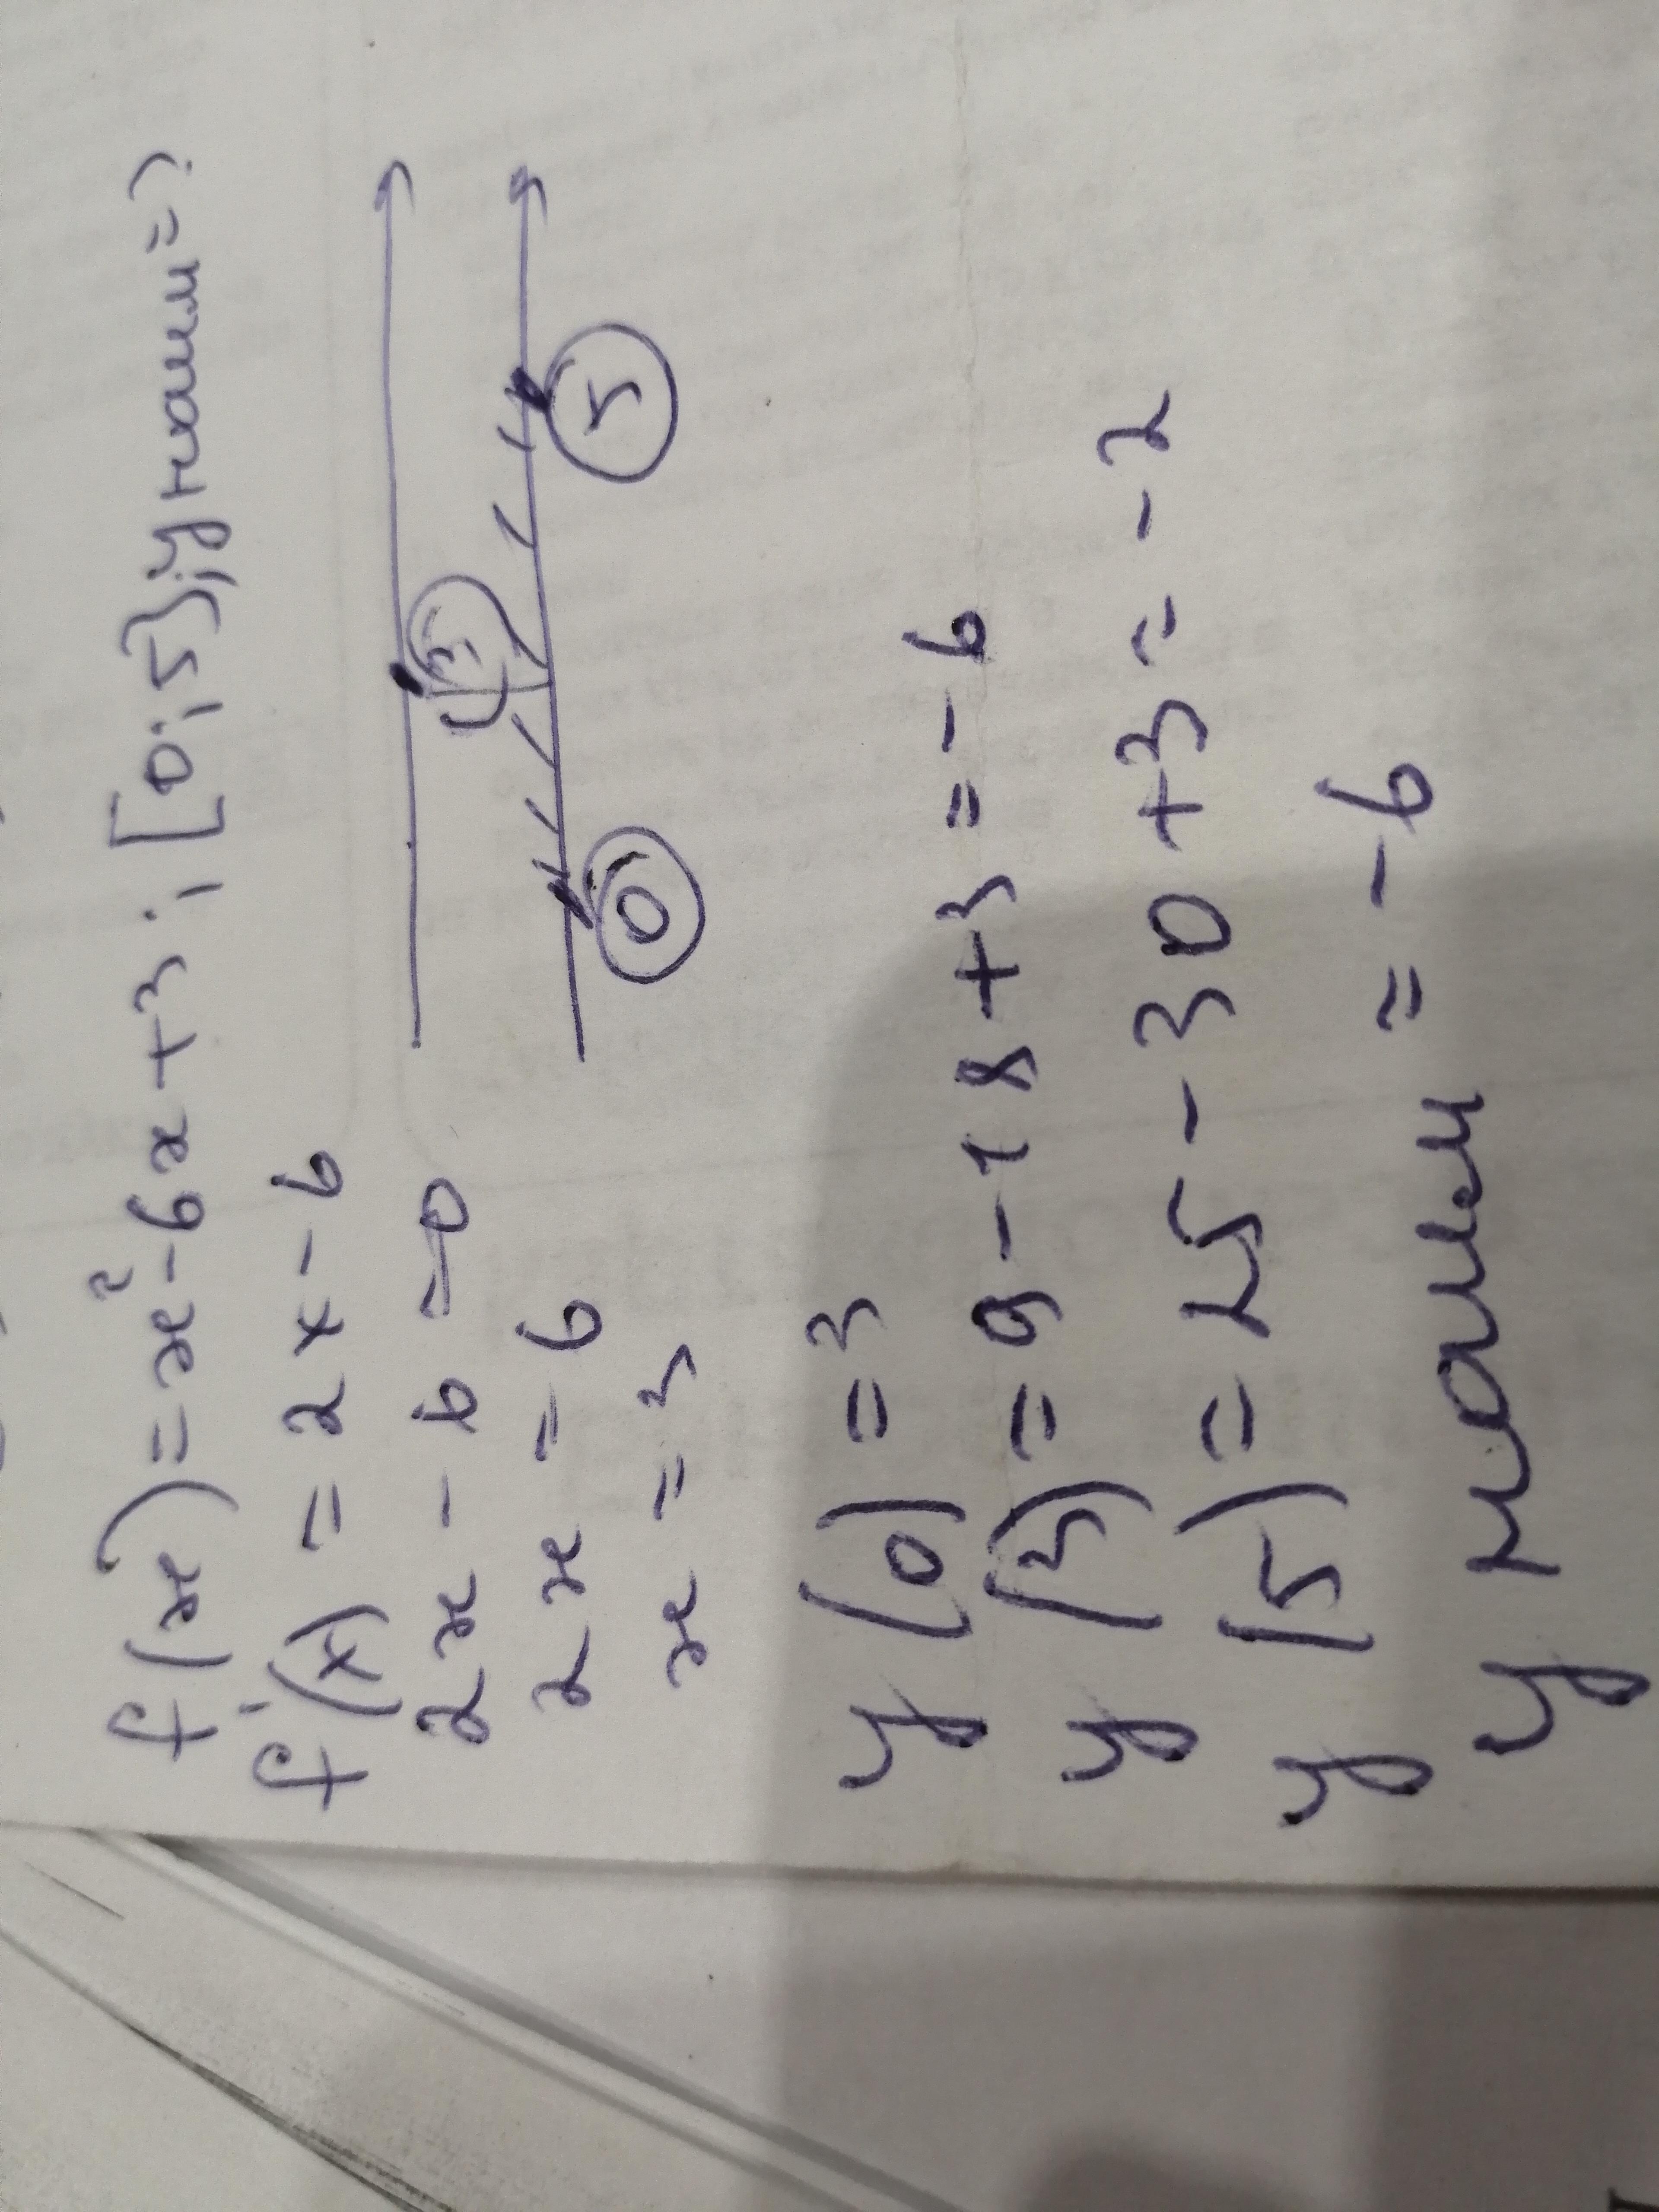 f(x) = x² - 6x + 3 ; [0;5]; y наим = ?
f'(x) = 2x - 6
2x - 6 = 0
2x = 6
x = 3
3
0 5
y(0) = 3
y(3) = 9 - 18 + 3 = -6
y(5) = 25 - 30 + 3 = -2
y наим = -6